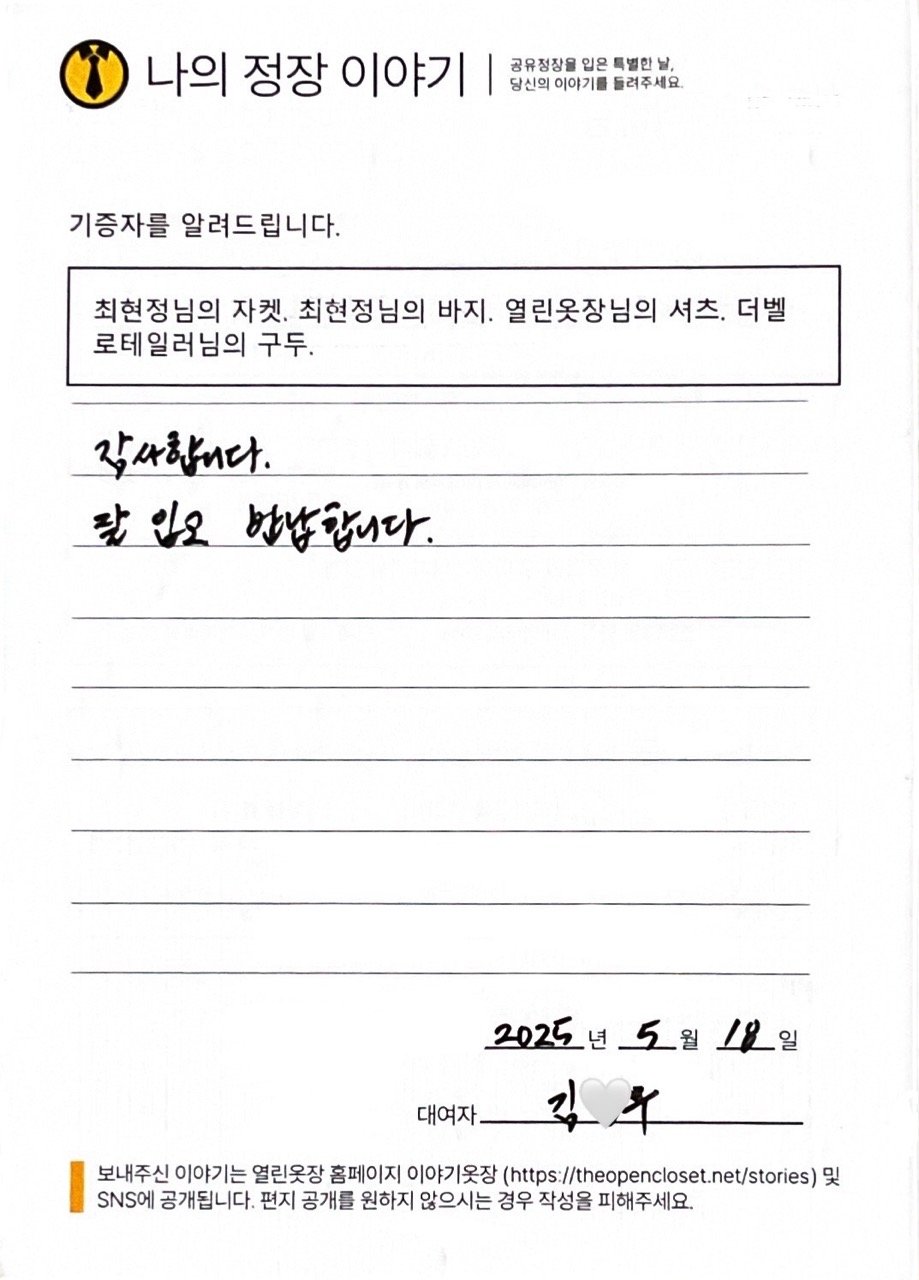 나의 정장 이야기
공유정장을 입은 특별한 날,
당신의 이야기를 들려주세요.
기증자를 알려드립니다.
최현정님의 자켓. 최현정님의 바지. 열린옷장님의 셔츠. 더벨
로테일러님의 구두.
감사합니다.
잘 입고 반납합니다.
2025 년 5 월 18 일
대여자 김
보내주신 이야기는 열린옷장 홈페이지 이야기옷장 (https://theopencloset.net/stories) 및
SNS에 공개됩니다. 편지 공개를 원하지 않으시는 경우 작성을 피해주세요.